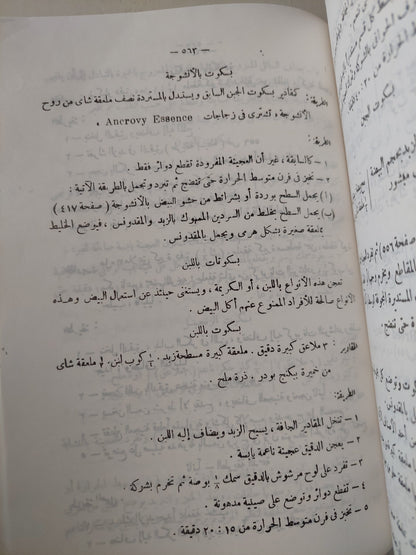 — ٥٦٣ —
بسكوت بالأنشوجة
الطريقة : كمقادير بسكوت الجبن السابق ويستبدل بالمستردة نصف ملعقة شاى من روح
الأنشوجة ، تشترى فى زجاجات Ancrovy Essence .
الطريقة :
١ – كالسابقة ، غير أن العجينة المفرودة تقطع دوائر فقط .
٢ – تخبز فى فرن متوسط الحرارة حتى تنضج ثم تبرد وتجمل بالطريقة الآتية :
(ا) يجمل السطح بوردة أو بشرائط من حشو البيض بالأنشوجة ( صفحة ٤١٧ )
(ب) يجمل السطح بخليط من السردين المهبوك بالزبد والمقدونس ، فيوضع الخليط
بملعقة صغيرة بشكل هرمى ويجمل بالمقدونس .
بسكوتات باللبن
تعجن هذه الأنواع باللبن ، أو بالكريمة ، ويستغنى حينئذ عن استعمال البيض وهذه
الأنواع صالحة للأفراد الممنوع عنهم أكل البيض .
بسكوت باللبن
المقادير : ٣ ملاعق كبيرة دقيق . ملعقة كبيرة مسطحة زبد . كوب لبن . ملعقة شاى
من خميرة بيكنج بودر . ذرة ملح .
الطريقة :
١ – تنخل المقادير الجافة ، يسيح الزبد ويضاف إليه اللبن .
٢ – يعجن الدقيق عجينة ناعمة يابسة .
٣ – تفرد على لوح مرشوش بالدقيق سمك ⅛ بوصة ثم تخرم بشوكة .
٤ – تقطع دوائر وتوضع على صينية مدهونة .
٥ – تخبز فى فرن متوسط الحرارة من ١٥ : ٢٠ دقيقة .